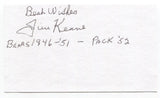 Best Wishes
Jim Keane
BEARS 1946-'51 - PACK '52